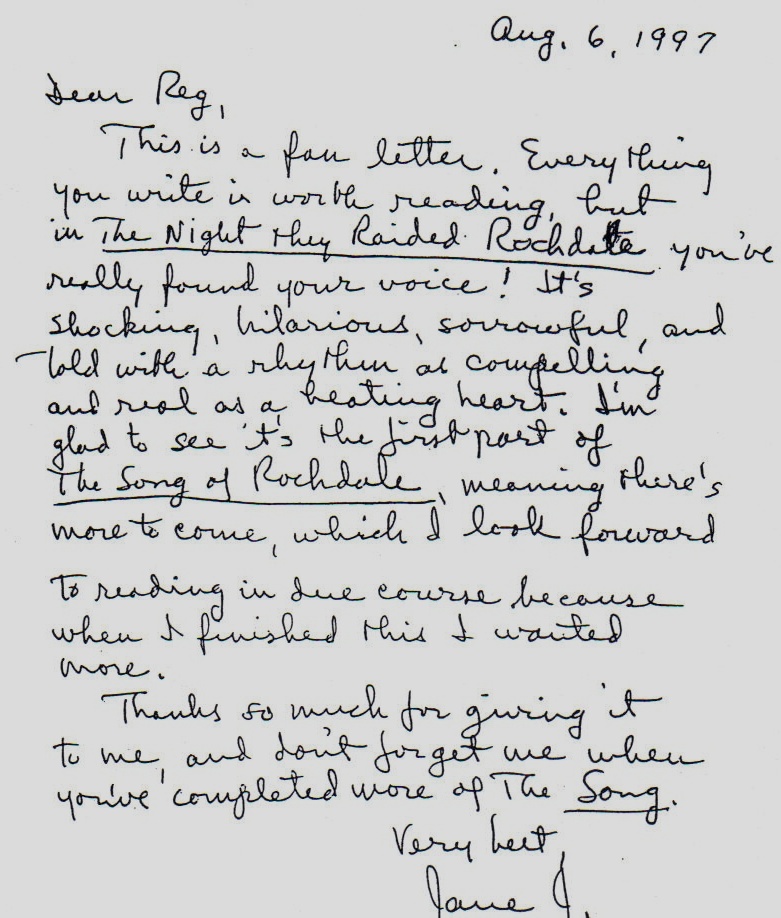 Aug. 6, 1997
Dear Reg,
This is a fan letter. Everything
you write is worth reading, but
in The Night they Raided Rochdale you've
really found your voice! It's
shocking, hilarious, sorrowful, and
told with a rhythm as compelling
and real as a beating heart. I'm
glad to see it's the first part of
The Song of Rochdale, meaning there's
more to come, which I look forward
to reading in due course because
when I finished this I wanted
more.
Thanks so much for giving it
to me, and don't forget me when
you've completed more of The Song.
Very best,
Jane J.